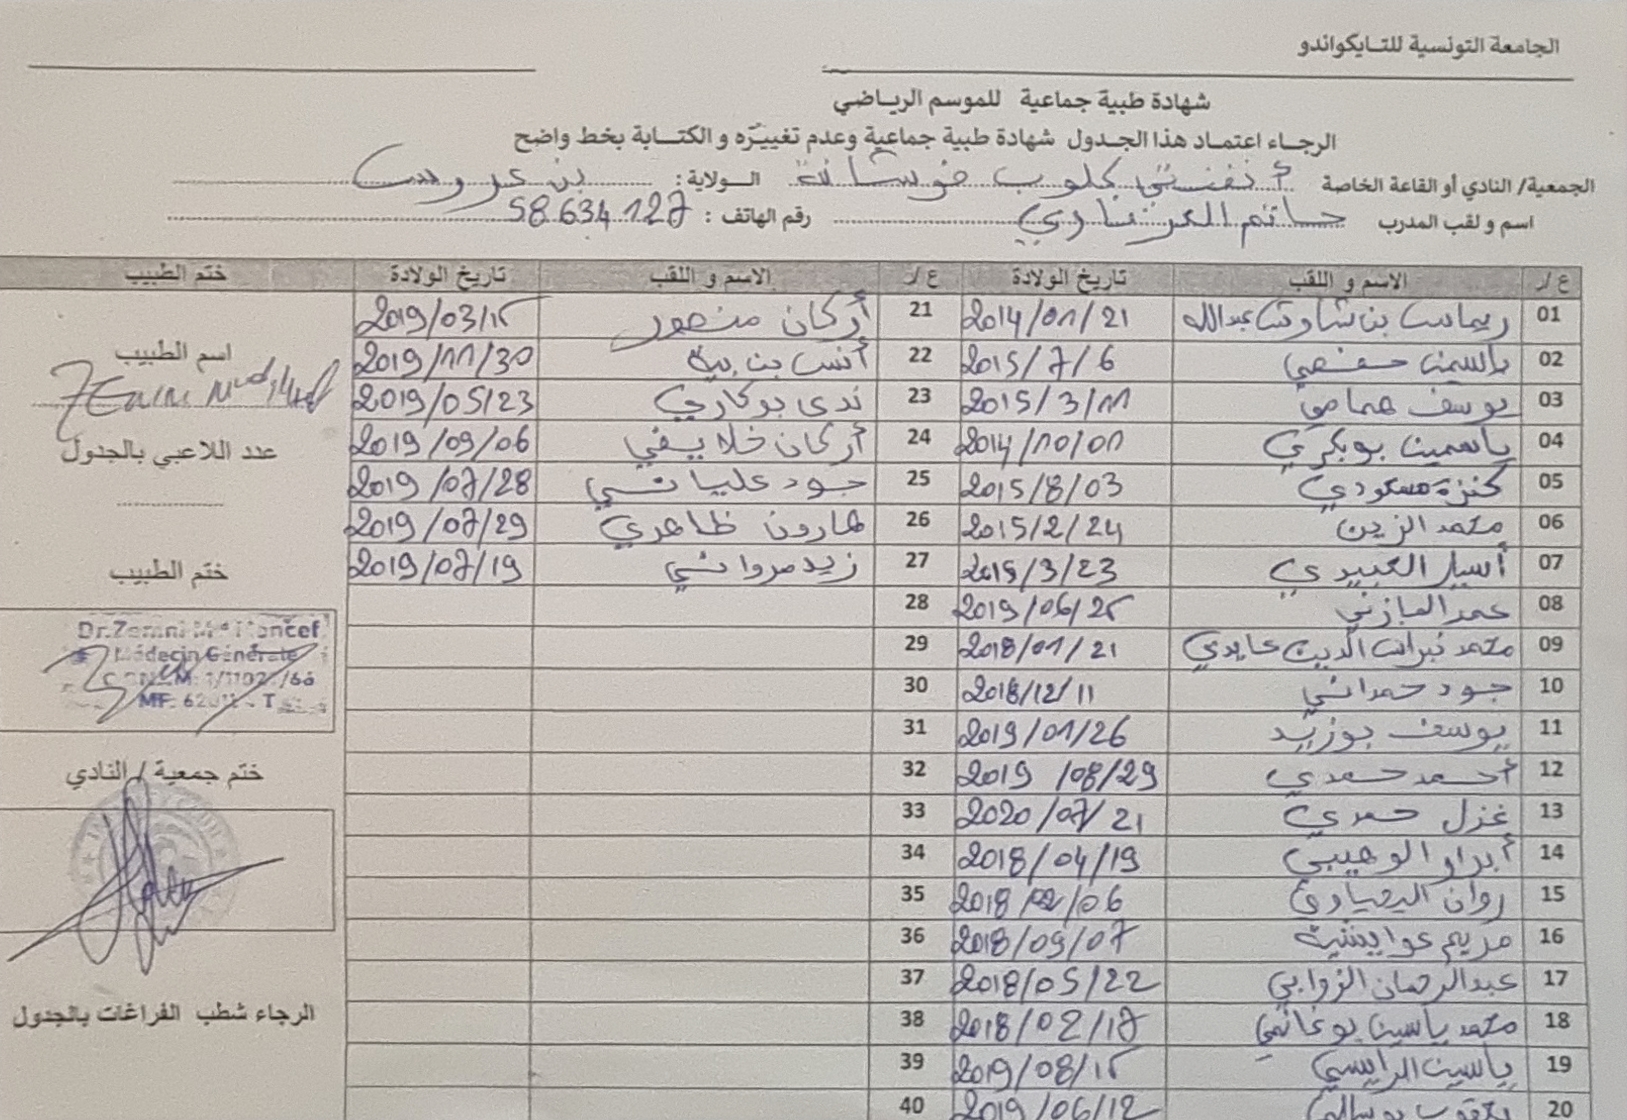 الجامعة التونسية للتايكواندو
شهادة طبية جماعية للموسم الرياضي
الرجاء اعتماد هذا الجدول شهادة طبية جماعية وعدم تغييّره و الكتابة بخط واضح
الجمعية/ النادي أو القاعة الخاصة أنفنتي كلوب فوشانة الولاية : بن عروس
اسم و لقب المدرب حاتم العرفاوي رقم الهاتف : 58634127
ع/ر الاسم و اللقب تاريخ الولادة ع/ر الاسم و اللقب تاريخ الولادة ختم الطبيب
01 ريماس بن شاوش عبدالله 2014/01/21 21 أركان منصور 2019/03/15
02 ياسمن حفصي 2015/7/6 22 أنس بن بية 2019/11/30
03 يوسف همامي 2015/3/11 23 ندى بوكاري 2019/05/23
04 ياسمين بوبكري 2014/10/01 24 أركان خلايفي 2019/09/06
05 كنزة مسعودي 2015/8/03 25 جود عليانسي 2019/07/28
06 محمد الزين 2015/2/24 26 هارون ظاهري 2019/07/29
07 أسيل العبيدي 2015/3/23 27 زيد مرواني 2019/07/19
08 عمر المازني 2019/06/25 28
09 محمد الدين عايدي 2018/01/21 29
10 جود حمداني 2018/12/11 30
11 يوسف بوزيد 2019/01/26 31
12 أحمد حمدي 2019/08/29 32
13 غزل حمدي 2020/07/21 33
14 أبرار الوهيبي 2018/04/19 34
15 روان اليحياوي 2018/02/06 35
16 مريم عوايشية 2018/09/07 36
17 عبدالرحمان الزوابي 2018/05/22 37
18 محمد ياسين بوغانمي 2018/02/17 38
19 ياسين الرايسي 2019/08/15 39
20 يعقوب بوسالمي 2019/06/12 40
اسم الطبيب
عدد اللاعبي بالجدول
ختم الطبيب
Dr.Zemni Md Moncef
Médecin Générale
ختم جمعية / النادي
الرجاء شطب الفراغات بالجدول